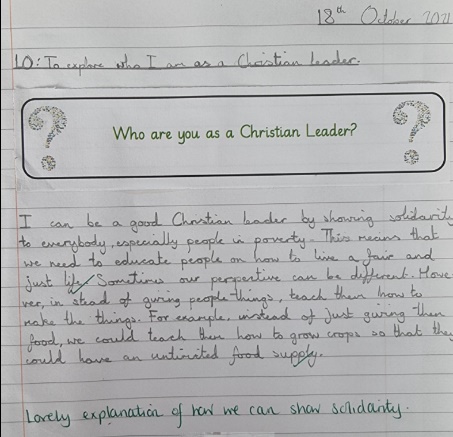 18th October 2021
LO: To explore who I am as a Christian leader.
Who are you as a Christian Leader?
I can be a good Christian leader by showing solidarity
to everybody, especially people in poverty. This means that
we need to educate people on how to live a fair and
just life. Sometimes our perpective can be different. Howe
ver, in stead of giving people things, teach them how to
make the things. For example, instead of just giving them
food, we could teach them how to grow crops so that they
could have an untimited food supply.
Lovely explanation of how we can show solidarity.